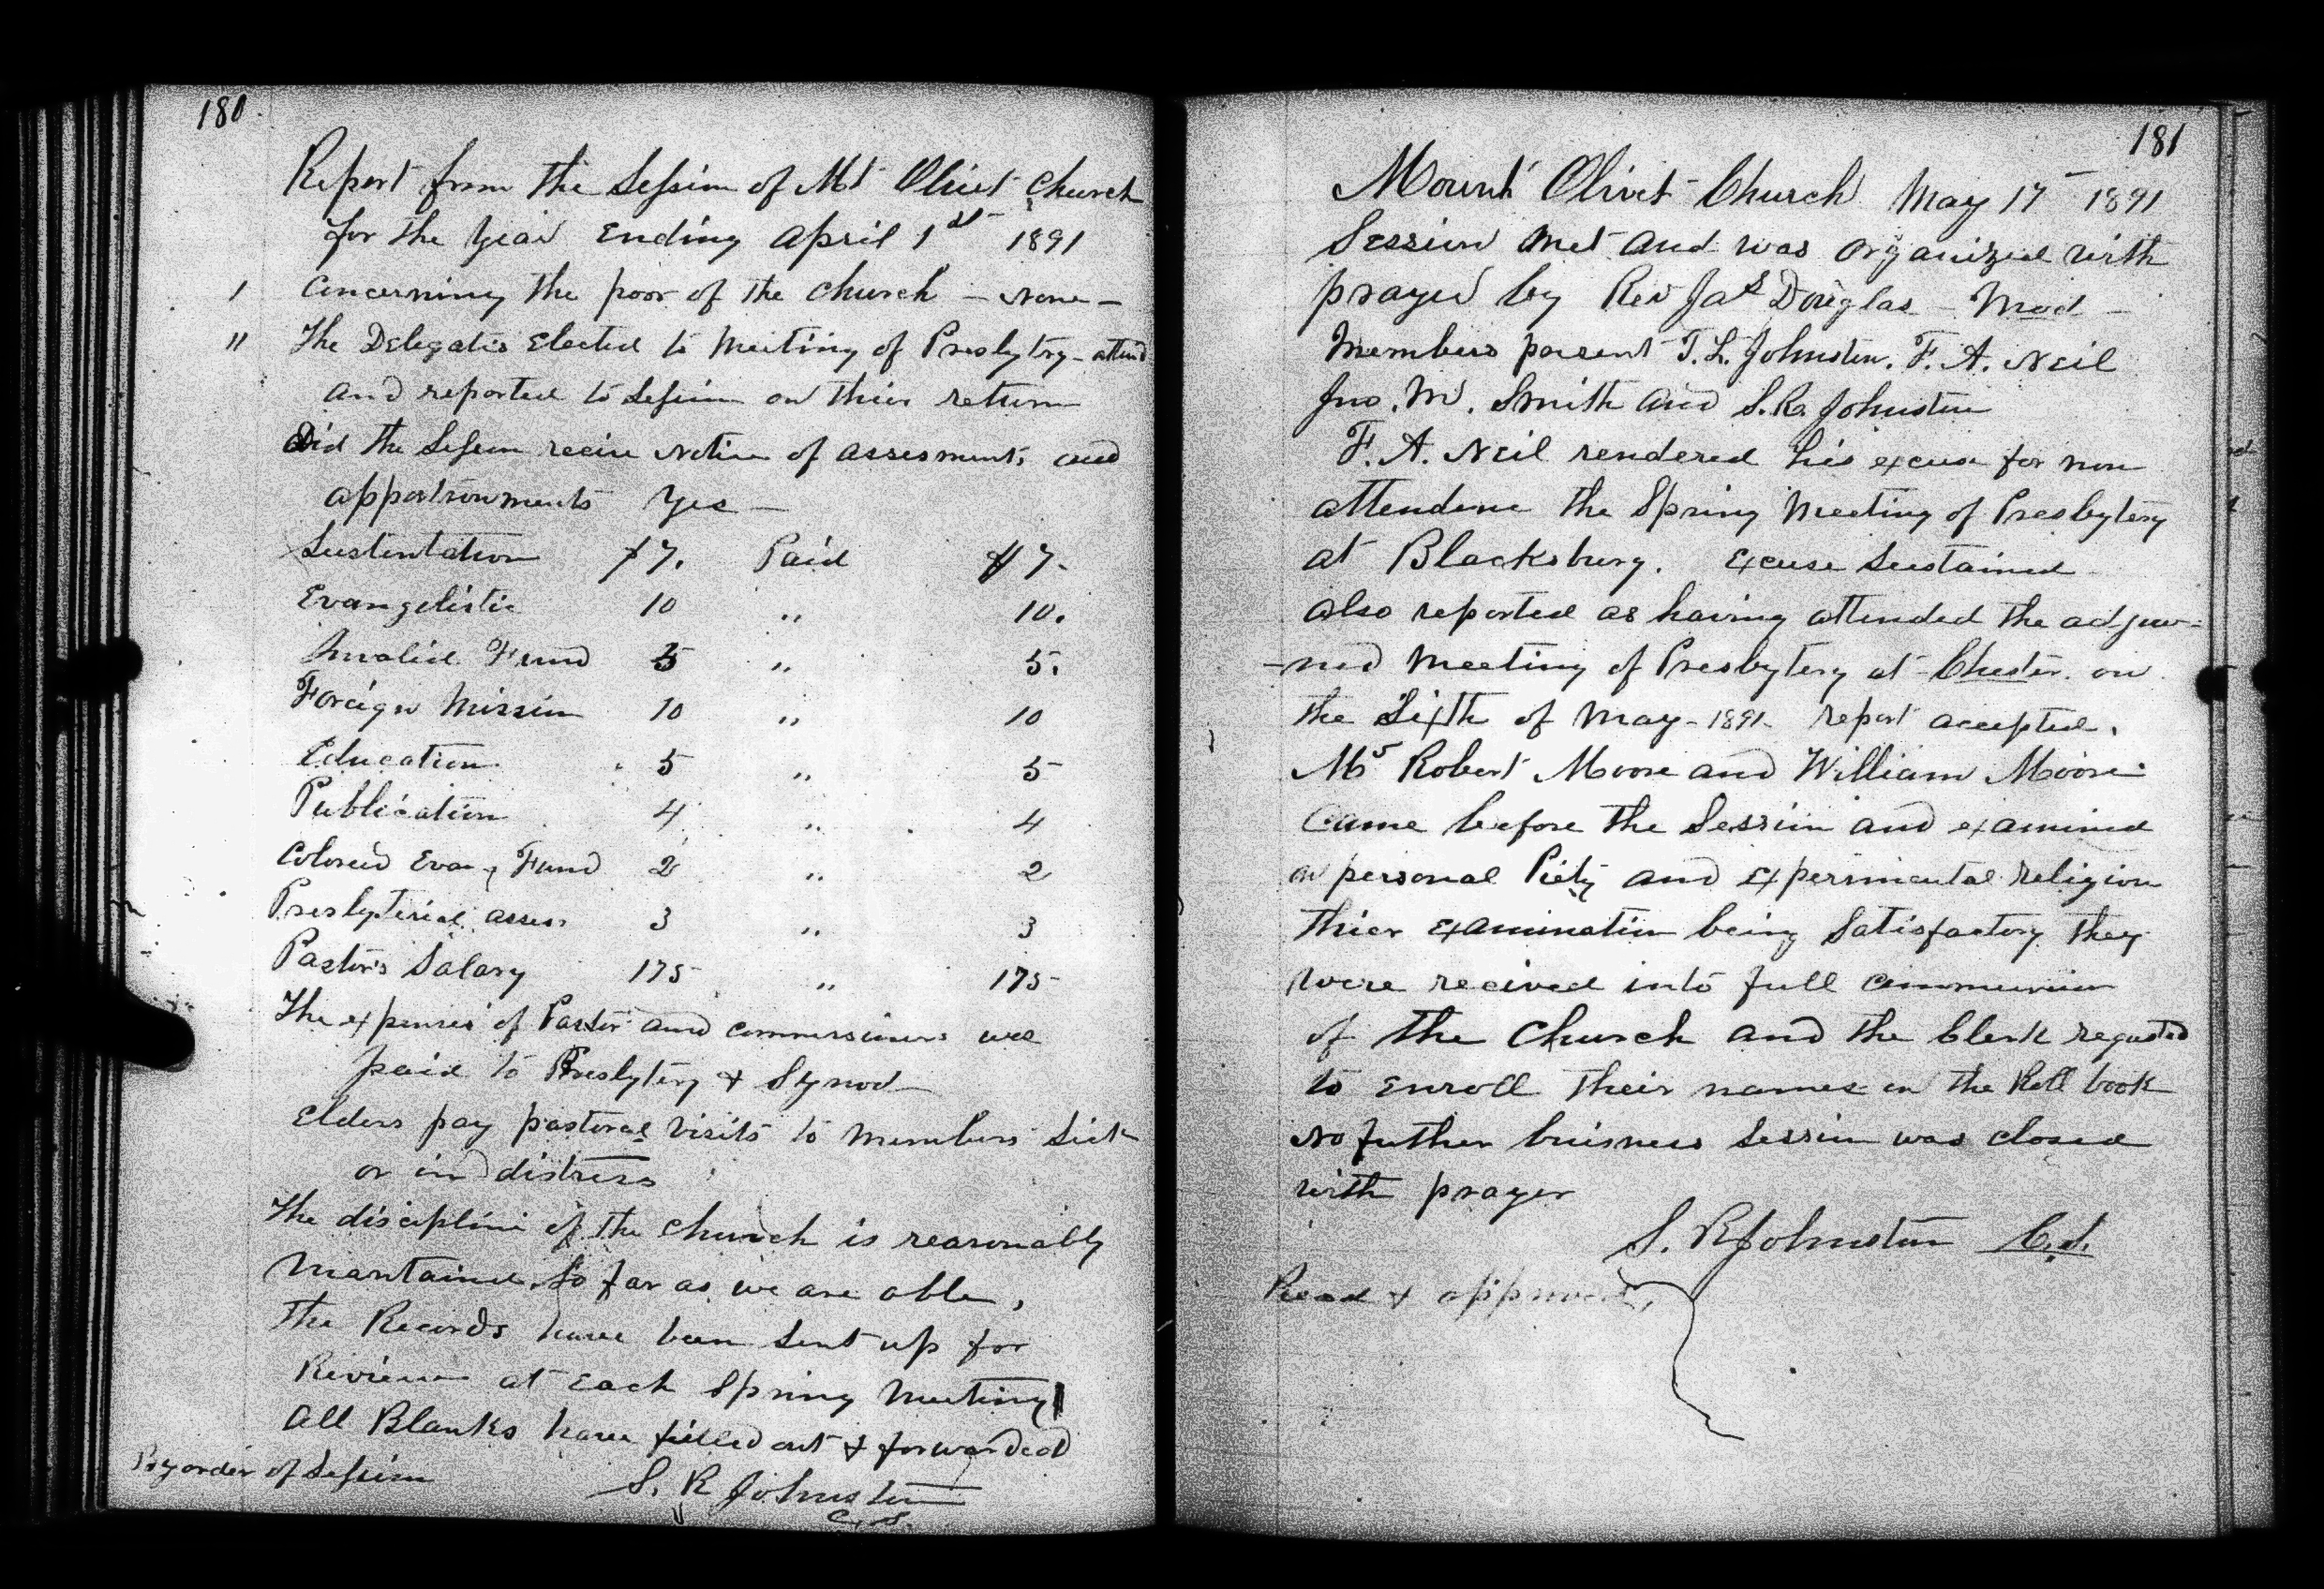 180
Report from the Session of Mt Olivet Church
for the year Ending April 1st 1891
1 Concerning the poor of the church – None –
11 The Delegates Elected to Meeting of Presbytery – attend
and reported to Session on thier return
Did the Session recive Notice of assesments and
apportionments Yes –
Sustentation $7. Paid $7.
Evangelistic 10 " 10.
Invalid Fund 5 " 5.
Foreign Mission 10 " 10
Education 5 " 5
Publication 4 " 4
Colored Evan, Fund 2 " 2
Presbyterial assess 3 " 3
Pastor's Salary 175 " 175
The expenses of Pastor and commissioners are
paid to Presbytery & Synod
Elders pay pastoral visits to Members sick
or in distress
The discipline of the church is reasonably
Mantained so far as we are able,
The Records have been sent up for
Review at each Spring Meeting
All Blanks have filled out & forwarded
By order of Session S. R Johnston
C. S.
181
Mount Olivet Church May 17 1891
Session Met and was organized with
prayer by Rev Jas Douglas – Mod –
Members present T. L. Johnston. F. A. Neil
Jno. M. Smith and S. R. Johnston
F. A. Neil rendered his excuse for non
attendence the Spring Meeting of Presbytery
at Blacksburg. Excuse Sustained
also reported as having attended the adjour-
-ned Meeting of Presbytery at Chester on
the Sixth of May – 1891 – report accepted.
Mrs Robert Moore and William Moore
Came before the Session and examined
on personal Piety and Experimental religion
thier Examination being Satisfactory they
were recived into full communion
of the Church and the Clerk requested
to Enroll their names on the Roll book
No futher buisness Session was closed
with prayer
S. R Johnston C. S.
Read & approved,